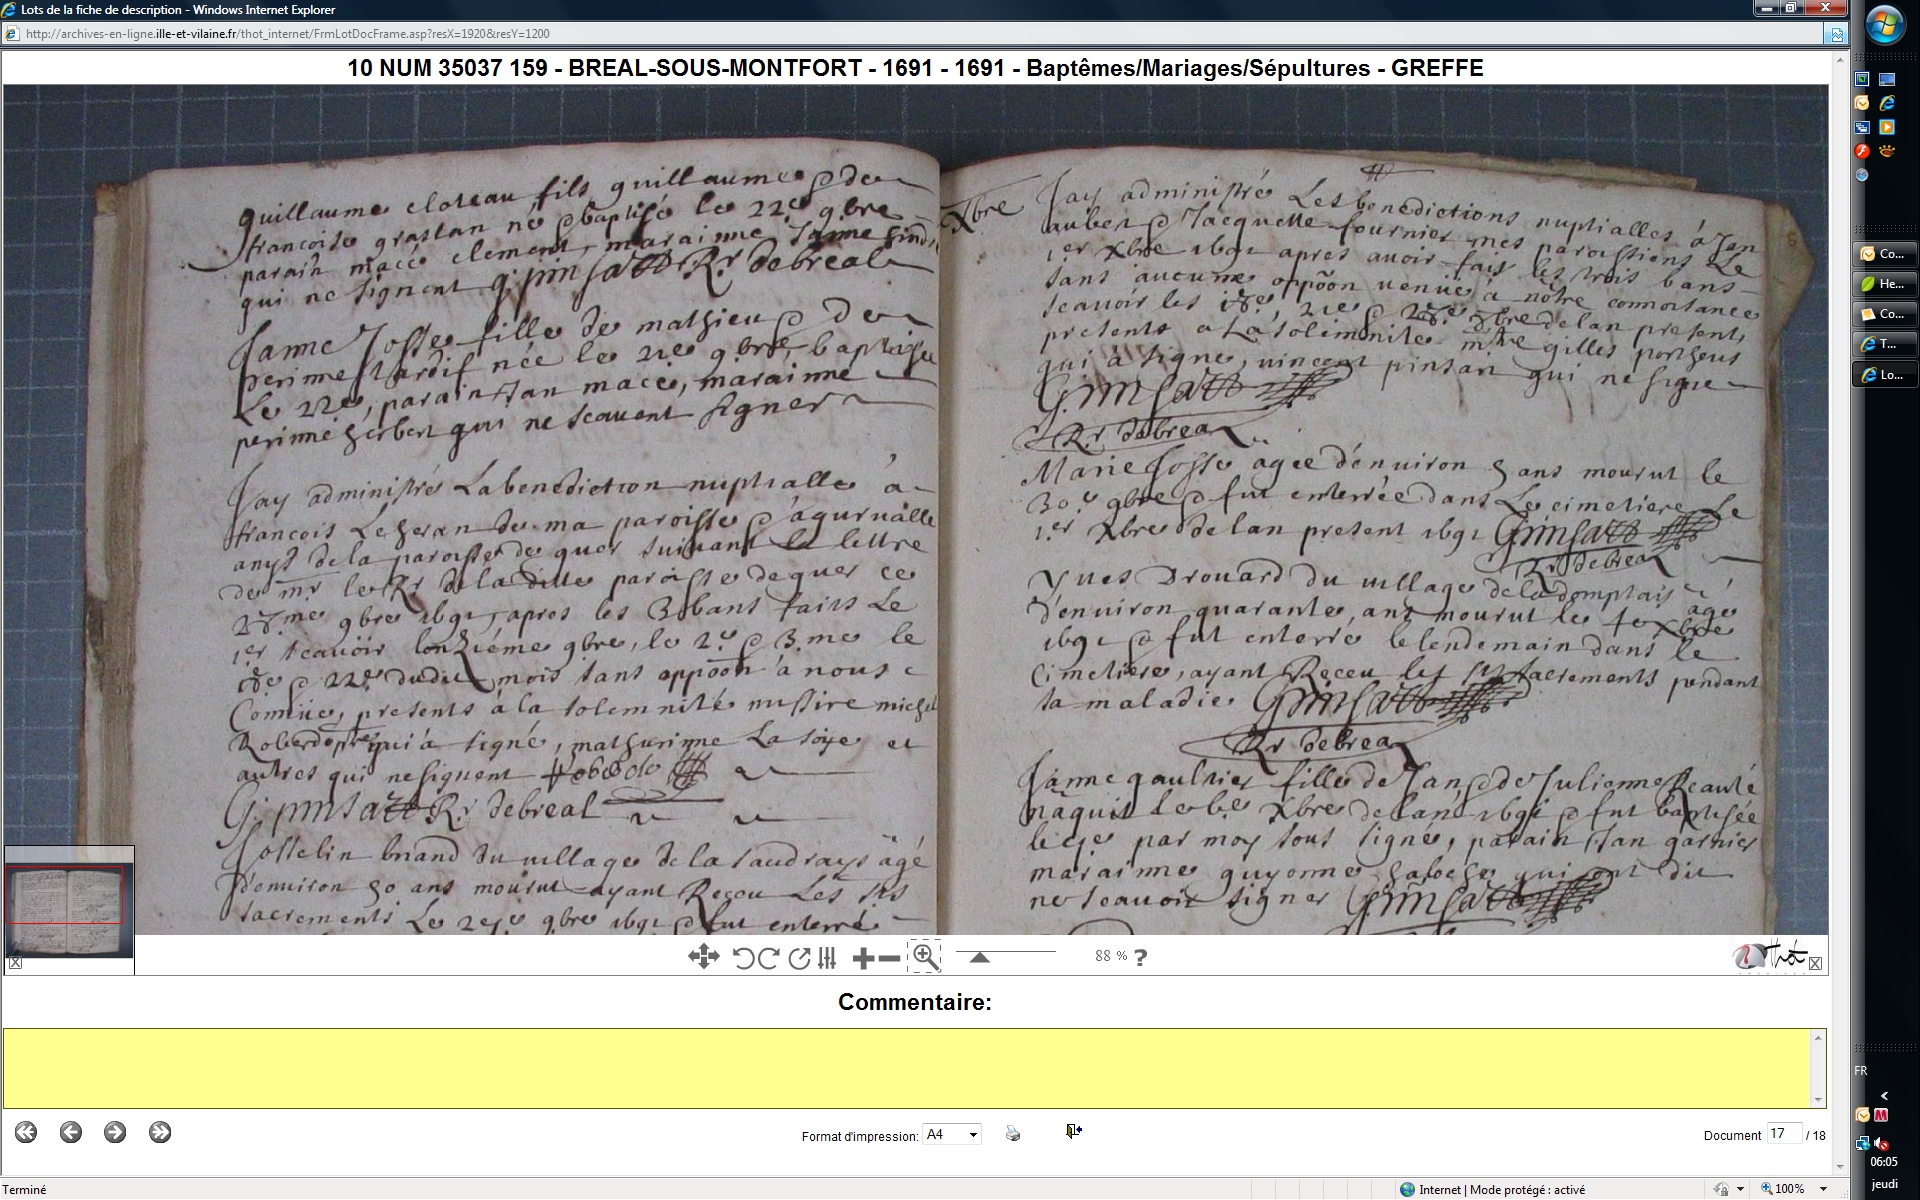 Lots de la fiche de description - Windows Internet Explorer
http://archives-en-ligne.ille-et-vilaine.fr/thot_internet/FrmLotDocFrame.asp?resX=1920&resY=1200
10 NUM 35037 159 - BREAL-SOUS-MONTFORT - 1691 - 1691 - Baptêmes/Mariages/Sépultures - GREFFE
guillaume cloteau fils guillaume & de
francoise né & baptisé le 22e 9bre
parain macé clement, marainne Janne
qui ne signent Rr de breal
Janne Josse fille de mathieu & de
perinne tardif née le 21e 9bre, baptisée
Le 22e, parain Jan macé, marainne
perinne herbert qui ne scavent signer
Jay administré La benediction nuptialle à
francois Leheran de ma paroisse &
de la paroisse de suivant la lettre
de mr le Rr de la ditte paroisse de ce
9bre 1691, apres les 3 bans faits Le
1er scavoir lonziéme 9bre, le 2e & 3me le
18e & 22e dudit mois sans oppoon à nous
Connüe, presents à la solemnité missire michel
qui à signé, mathurinne La soye et
autres qui ne signent
G: pinsart Rr de breal
Josselin briand du village de la saudraye âgé
d'environ 50 ans mourut ayant Reçeu Les sts
sacrements Le 9bre 1691 & fut enterré
Xbre
Jay administré Les benedictions nuptialles à Jan
aubert & Jacquette fournier mes paroissiens Le
1er Xbre 1691 apres avoir fait les trois bans
sans aucune oppoon venüe à nôtre connoissance
scavoir les 18e, 21e & 9bre de lan present,
presents a La solemnité mtre gilles porcheus
qui à signe, vincent pinsart qui ne signe
G: pinsart
Rr de breal
Marie Josse agee denviron 5 ans mourut le
30e 9bre & fut enterrée dans Le cimetiere Le
1er Xbre de lan present 1691 G: pinsart
Rr de breal
Yves Drouard du village de la domptais âgé
d'environ quarante ans mourut le 4e Xbre
1691 & fut enterré le lendemain dans le
Cimetiere, ayant Reçeu les sts sacrements pendant
sa maladie G: pinsart
Rr de breal
Janne gaultier fille de Jan & de Julienne
naquit le 6e Xbre de lan 1691 & fut baptisée
le par moy sous signé, parain Jan garnier
marainne guyonne qui ont dit
ne scavoir signer G: pinsart
88 %
?
Thot
Commentaire:
Format d'impression: A4
Document 17 / 18
Terminé
Internet | Mode protégé : activé
100%
Co...
He...
Co...
T...
Lo...
FR
06:05
jeudi